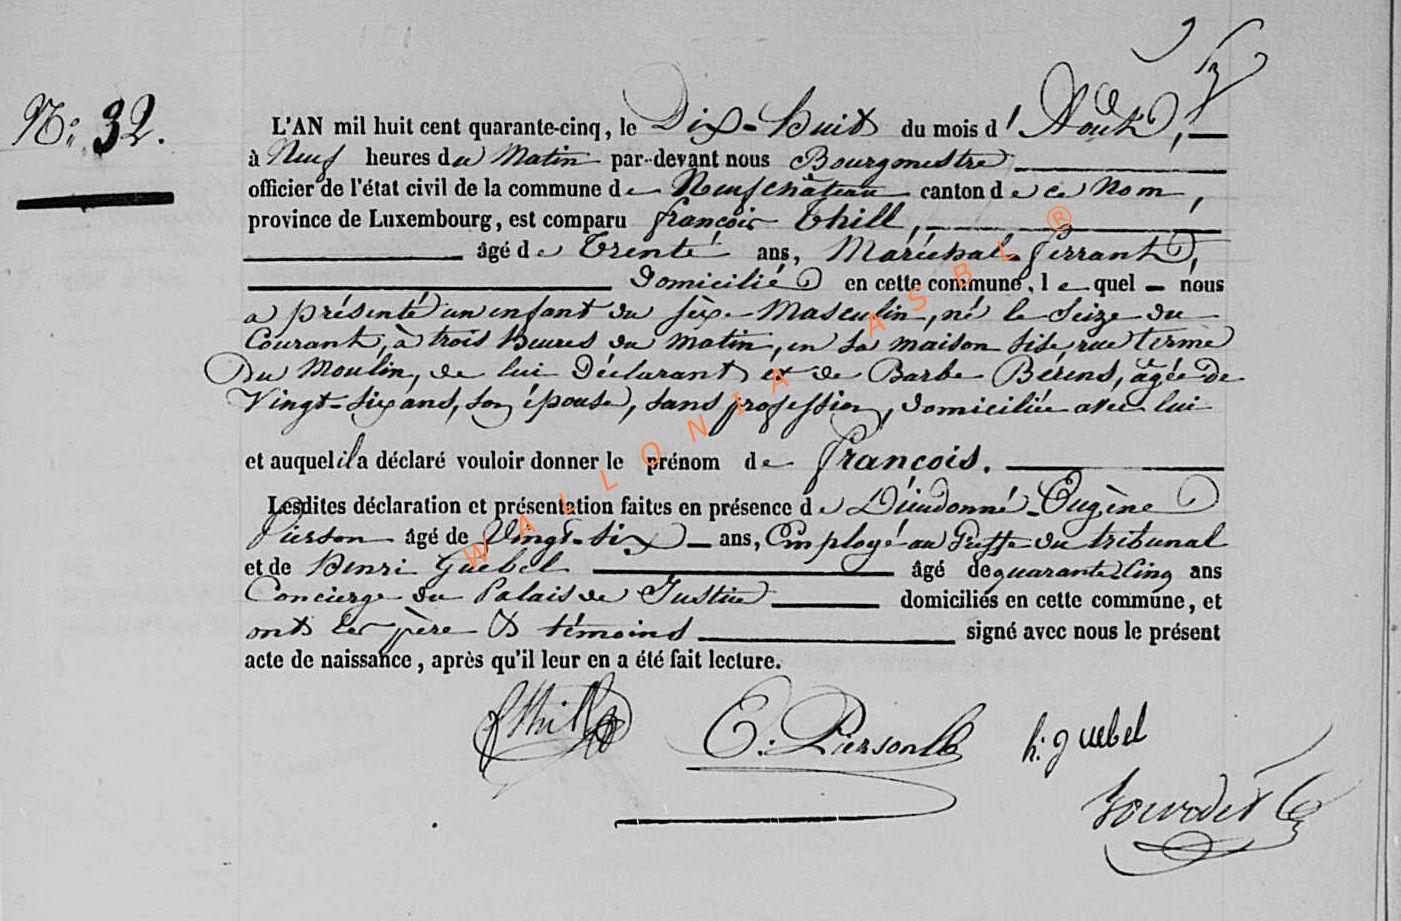 N: 32.
L'AN mil huit cent quarante-cinq, le Dix-huit du mois d'Août,
à Neuf heures du Matin par-devant nous Bourgmestre
officier de l'état civil de la commune de Neufchâteau canton de ce Nom,
province de Luxembourg, est comparu françois Thill,
âgé de Trente ans, Maréchal ferrant,
Domicilié en cette commune, le quel - nous
a présenté un enfant du sèxe Masculin, né le Seize du
Courant, à trois heures du matin, en sa maison sise, rue terme
Du Moulin, de lui Déclarant et de Barbe Bérens, âgée de
Vingt-six ans, son épouse, sans profession, domiciliée avec lui
et auquel il a déclaré vouloir donner le prénom de François.
Lesdites déclaration et présentation faites en présence de Dieudonné-Eugène
Pierson âgé de Vingt-six - ans, Employé au Greffe du tribunal
et de Henri Guebel âgé de quarante cinq ans
Concierge du Palais de Justice domiciliés en cette commune, et
ont les père & témoins signé avec nous le présent
acte de naissance, après qu'il leur en a été fait lecture.
fThill
E. Pierson
h: guebel
WALLONIA ASBL ®